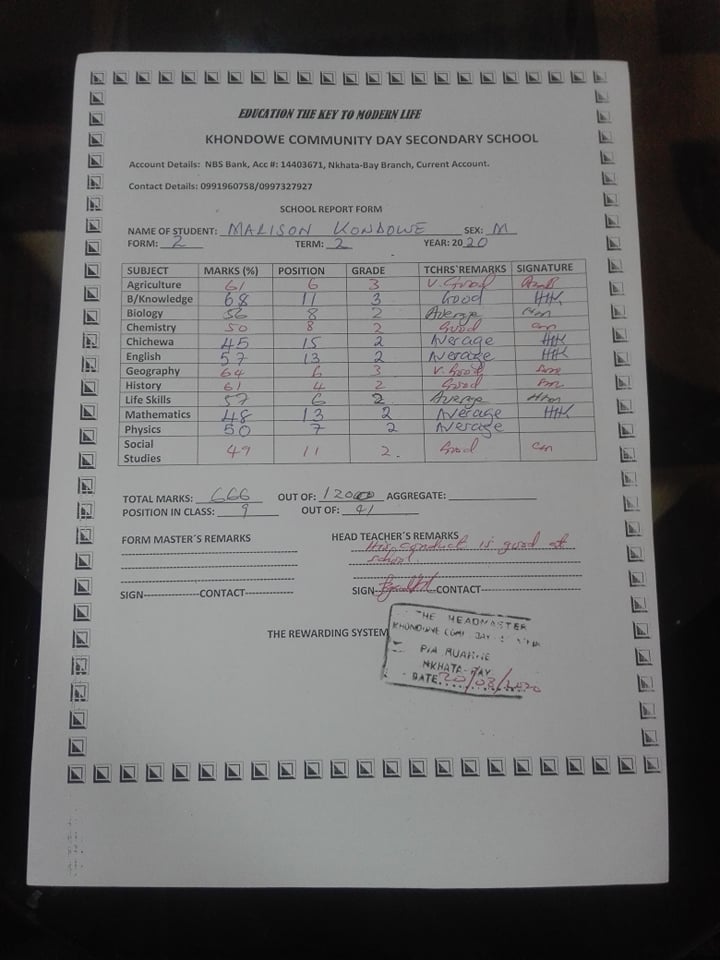 EDUCATION THE KEY TO MODERN LIFE
KHONDOWE COMMUNITY DAY SECONDARY SCHOOL
Account Details: NBS Bank, Acc #: 14403671, Nkhata-Bay Branch, Current Account.
Contact Details: 0991960758/0997327927
SCHOOL REPORT FORM
NAME OF STUDENT: MALISON KONDOWE SEX: M
FORM: 2 TERM: 2 YEAR: 2020
SUBJECT MARKS (%) POSITION GRADE TCHRS`REMARKS SIGNATURE
Agriculture 61 6 3 V. Good
B/Knowledge 68 11 3 Good
Biology 56 8 2 Average
Chemistry 50 8 2 Good
Chichewa 45 15 2 Average
English 57 13 2 Average
Geography 64 6 3 V. Good
History 61 4 2 Good
Life Skills 57 6 2 Average
Mathematics 48 13 2 Average
Physics 50 7 2 Average
Social Studies 49 11 2. Good
TOTAL MARKS: 666 OUT OF: 1200 AGGREGATE:
POSITION IN CLASS: 9 OUT OF: 41
FORM MASTER'S REMARKS
HEAD TEACHER'S REMARKS
His conduct is good at
school
SIGN CONTACT
SIGN CONTACT
THE REWARDING SYSTEM
THE HEADMASTER
KHONDOWE COM DAY
P/A
NKHATA-BAY
DATE 20/03/2020